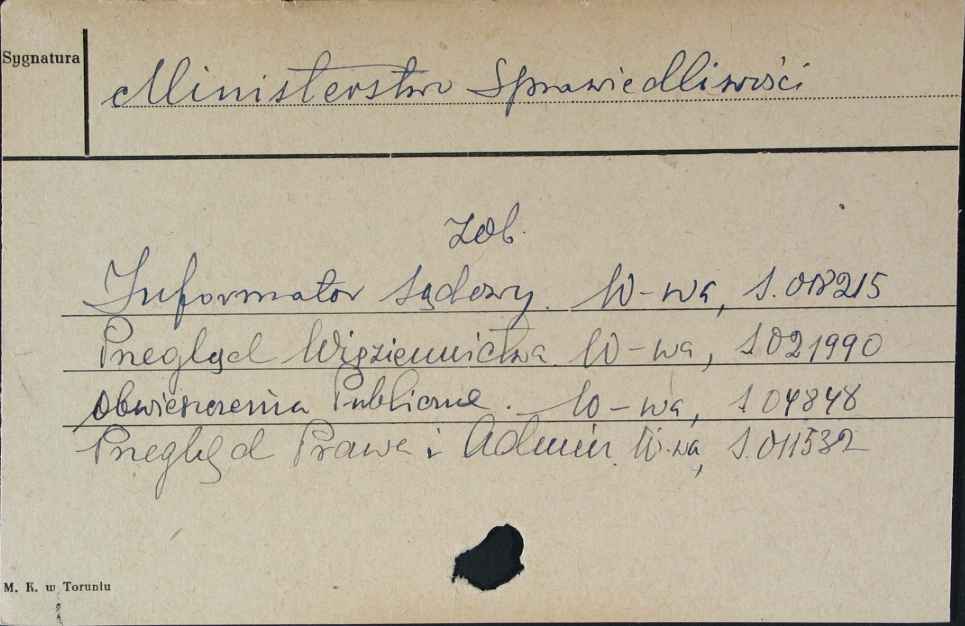 Sygnatura
Ministerstwo Sprawiedliwości
zob.
Informator Sądowy. W-wa, S.018215
Przegląd Więziennictwa W-wa, S 021990
Obwieszczenia Publiczne. W-wa, S 04848
Przegląd Prawa i Admin. W-wa, S.011532
M. K. w Toruniu